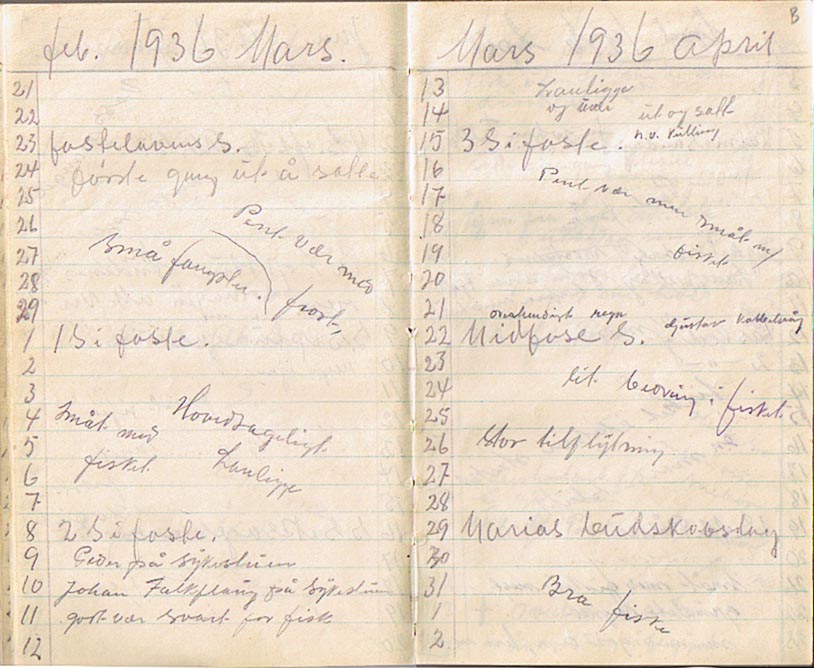 feb. 1936 Mars.
21
22
23 fastelavens S.
24 første gang ut å satte
25
26 Pent vær med
27 Små fangster.
28 frost
29
1 1 S i faste.
2
3
4 Smått med Hovedsageligt
5 fisket Landligge
6
7
8 2 S i faste.
9 Peder på sykestuen
10 Johan Falkflaug på Sykestuen
11 godt vær svart for fisk
12
Mars 1936 April
B
13 Landligge
14 og uvær ut og satt
15 3 S i faste. n.v. kulling
16
17 Pent vær men smått m/
18
19 fisket
20
21 regn
22 Midfase S. Gustav
23
24 lit bedring i fisket
25
26 Stor tilflytning
27
28
29 Marias budskabsdag
30
31 Bra
1 fiske
2